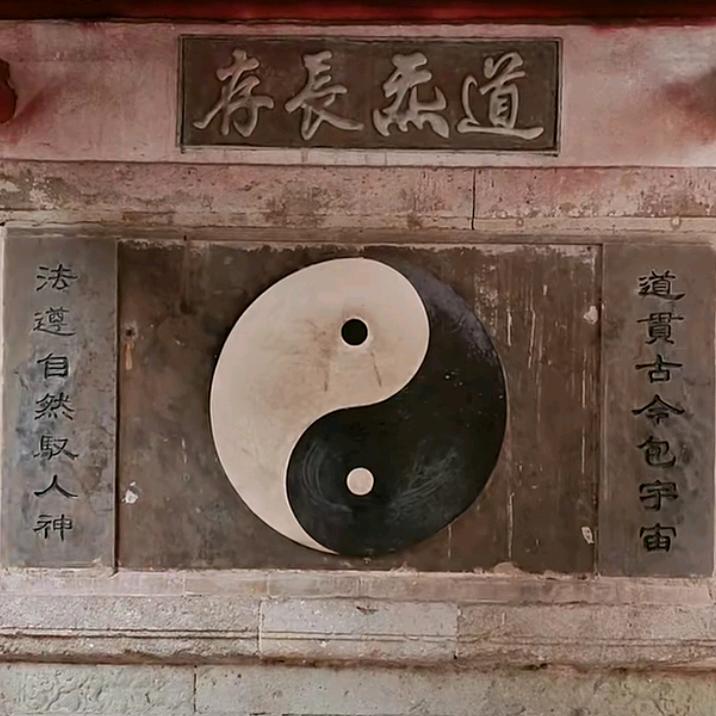 道炁長存
道貫古今包宇宙
法遵自然馭人神